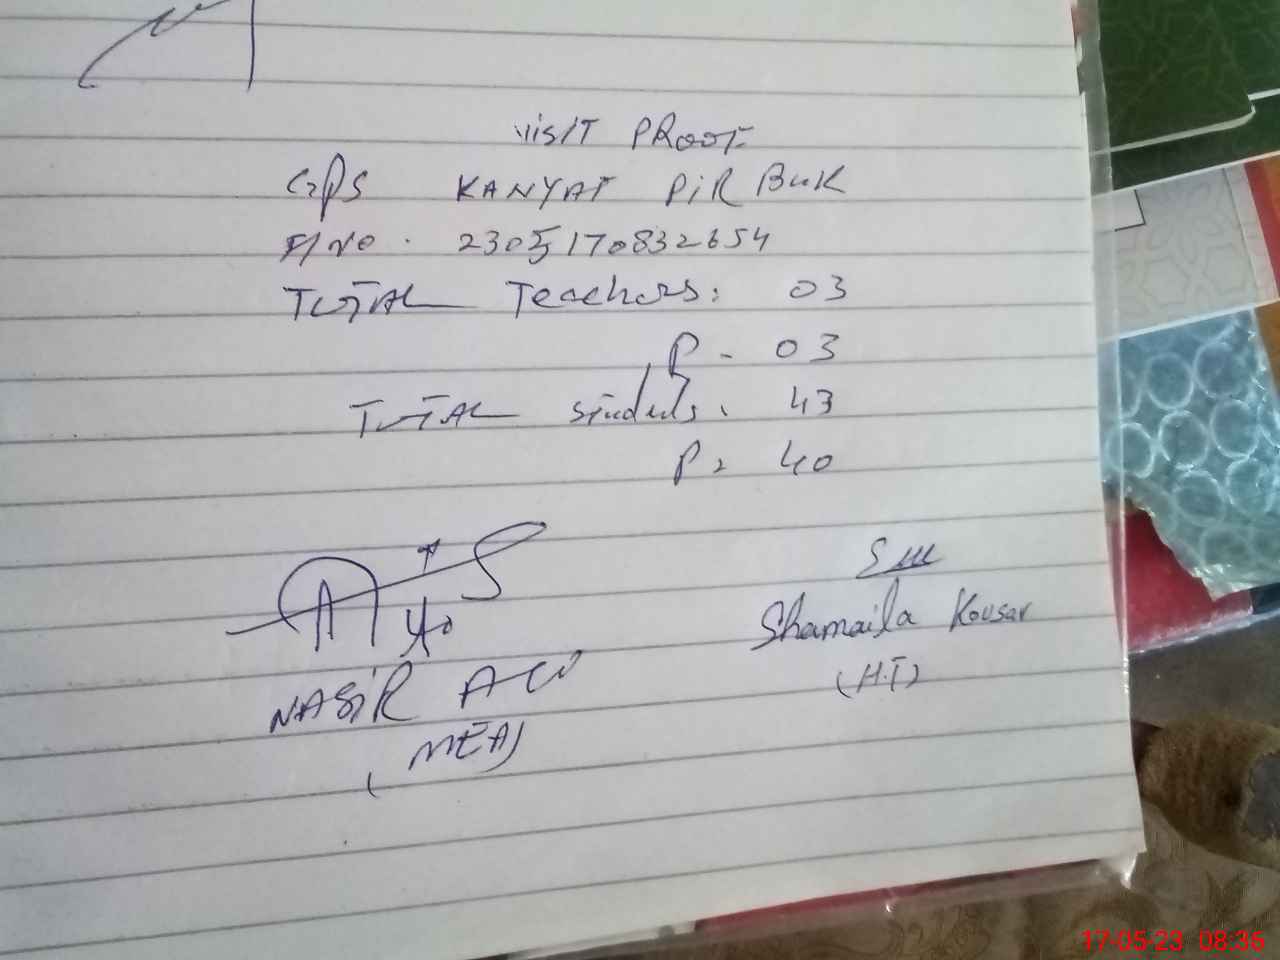 VISIT PROOF
GPS KANYAT PIR BUK
F/NO. 2305170832654
TOTAL Teachers: 03
P - 03
TOTAL students. 43
P. 40
NASIR ALI
(MEA)
Shamaila Kousar
(H.T)
17-05-23 08:36